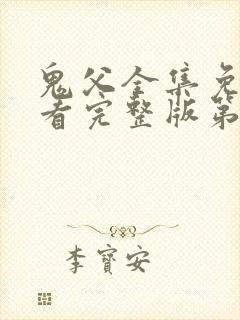 鬼父全集免
看完整版第
李寶安